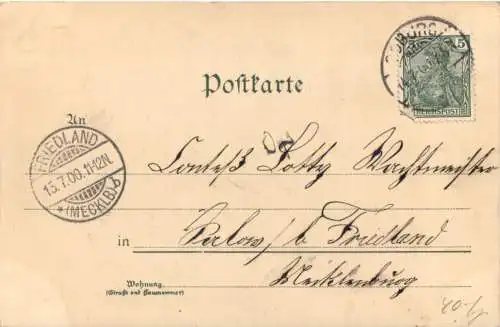 COBURG
5
REICHSPOST
Postkarte
An
FRIEDLAND
13.7.00.11-12N.
* (MECKLB.)
Contess Lotty Wachtmeister
in
b/ Friedland
Mecklenburg
Wohnung
(Straße und Hausnummer)
40.-